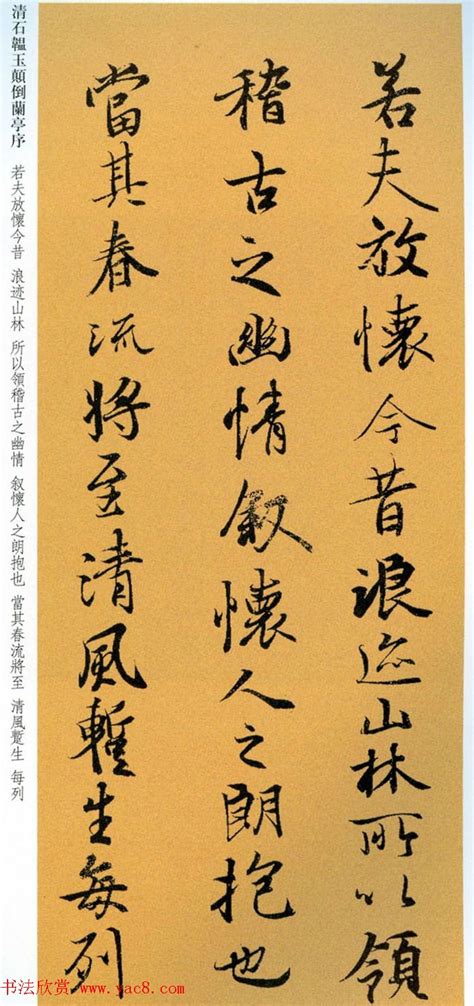 清石韞玉顛倒蘭亭序 若夫放懷今昔 浪迹山林 所以領稽古之幽情 叙懷人之朗抱也 當其春流將至 清風蹔生 每列
若夫放懷今昔浪迹山林所以領
稽古之幽情叙懷人之朗抱也
當其春流將至清風蹔生每列
书法欣赏 www.yac8.com